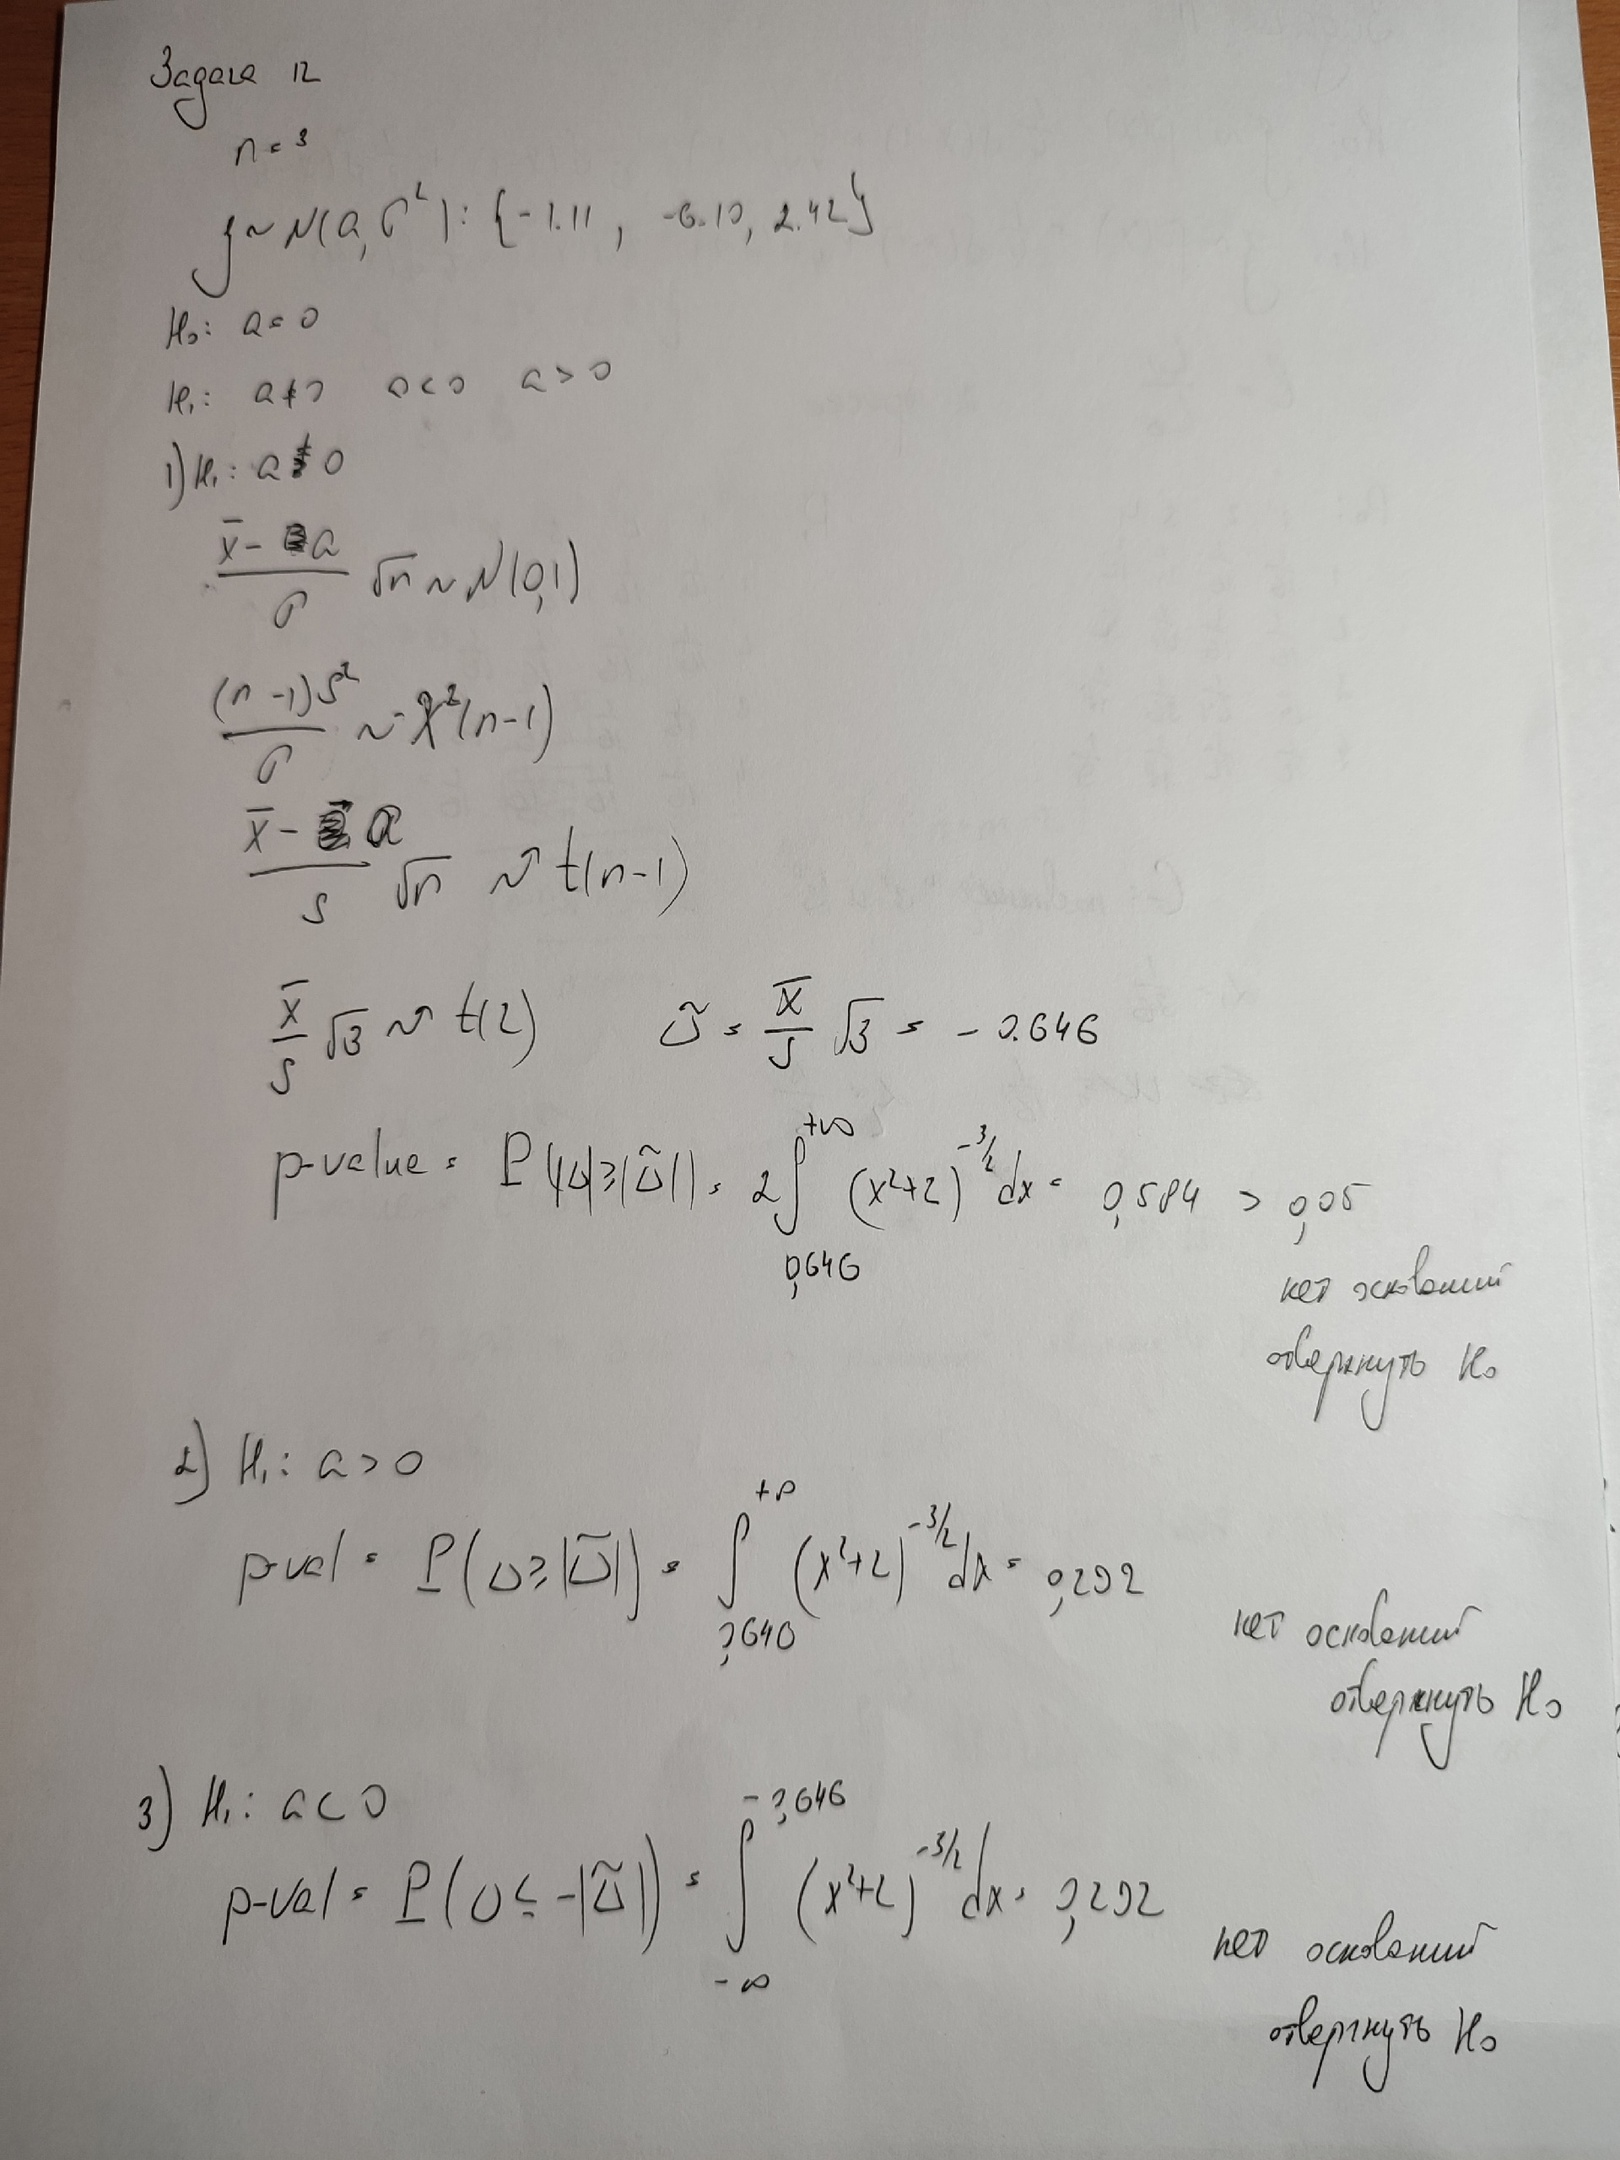 Задача 12
n = 3
ξ ~ N(a, σ²): {-1.11, -6.10, 2.42}
H₀: a = 0
H₁: a ≠ 0 a < 0 a > 0
1) H₁: a ≠ 0
(x̄ - a)/σ √n ~ N(0,1)
(n-1)S²/σ ~ χ²(n-1)
(x̄ - a)/s √n ~ t(n-1)
x̄/s √3 ~ t(2) Ũ = x̄/s √3 = -0.646
p-value = P(|U| ≥ |Ũ|) = 2 ∫_{0,646}^{+∞} (x²+2)^{-3/2} dx = 0,584 > 0,05
нет оснований
отвергнуть H₀
2) H₁: a > 0
p-val = P(U ≥ |Ũ|) = ∫_{0,646}^{+∞} (x²+2)^{-3/2} dx = 0,292
нет оснований
отвергнуть H₀
3) H₁: a < 0
p-val = P(U ≤ -|Ũ|) = ∫_{-∞}^{-0,646} (x²+2)^{-3/2} dx = 0,292
нет оснований
отвергнуть H₀